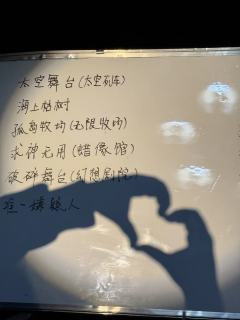 太空舞台(太空剧库)
海上枯树
孤岛牧场(无限牧场)
求神无用(蜡像馆)
破碎舞台(幻想剧院)
唯一嫌疑人